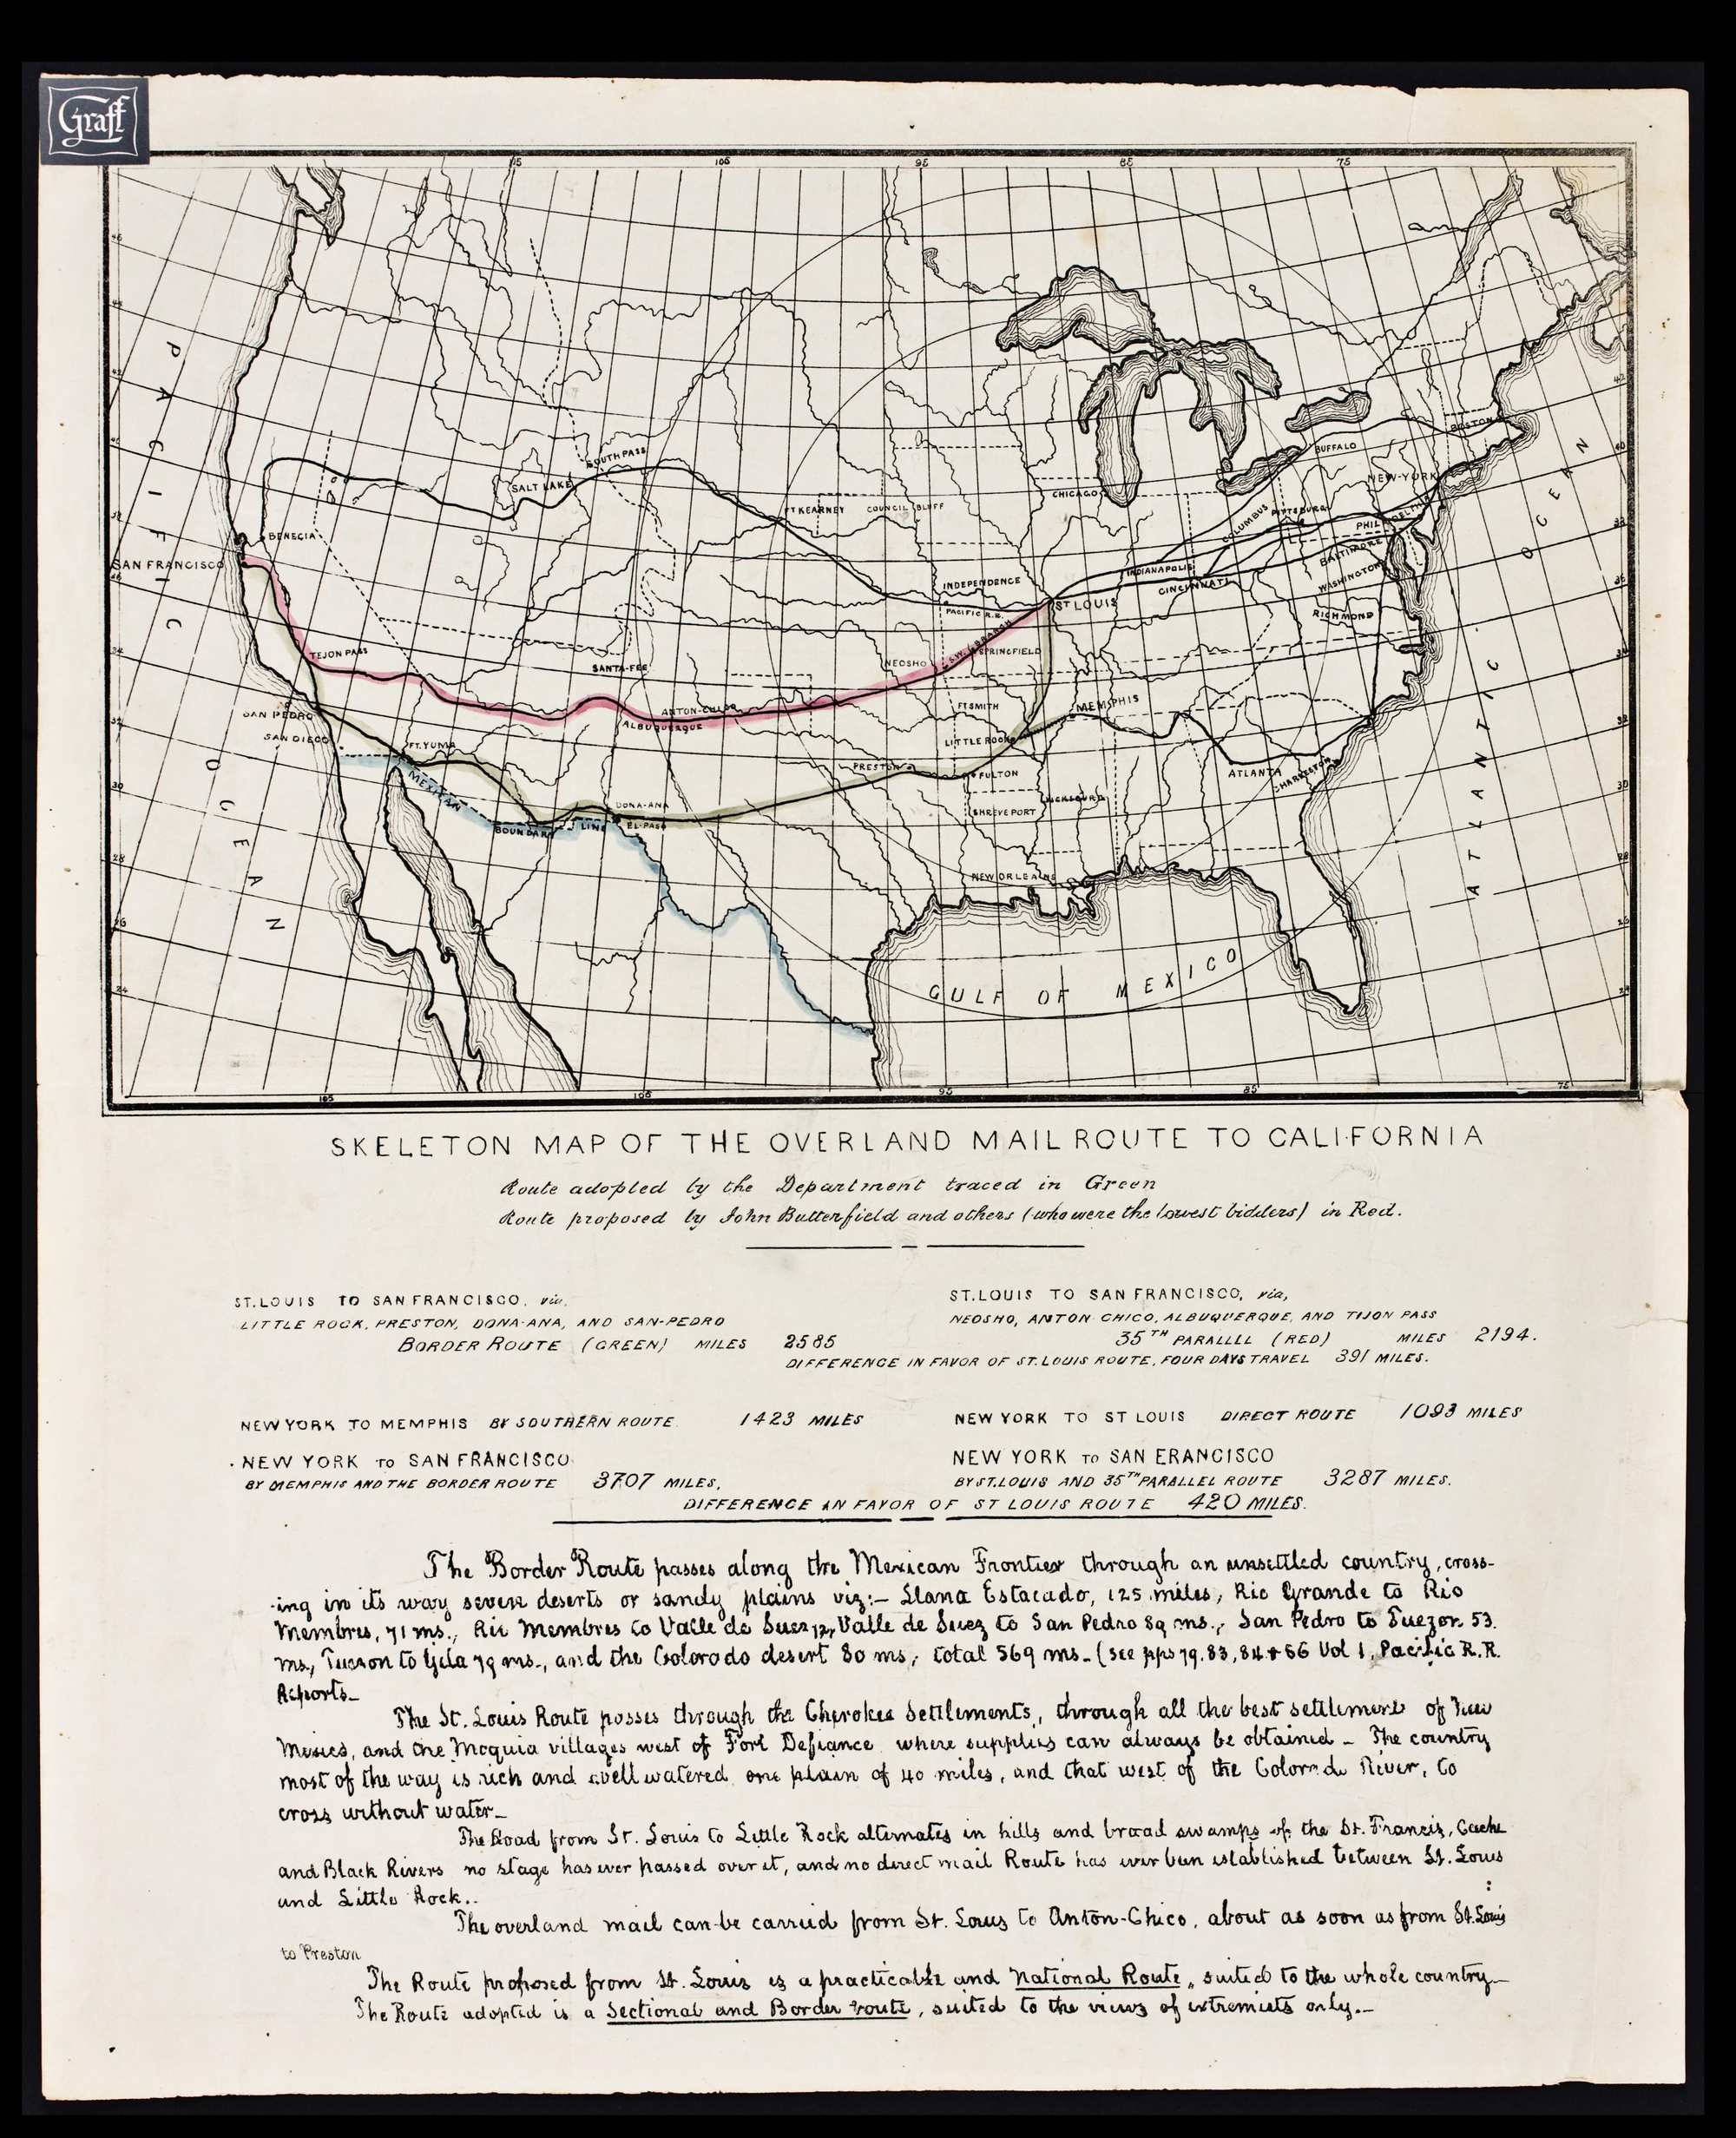 Graff
115 105 95 85 75
SOUTH PASS
SALT LAKE
FT KEARNEY
COUNCIL BLUFF
CHICAGO
BUFFALO
BOSTON
NEW-YORK
COLUMBUS
PITTSBURG
PHILADELPHIA
BALTIMORE
WASHINGTON
RICHMOND
INDIANAPOLIS
CINCINNATI
BENECIA
SAN FRANCISCO
INDEPENDENCE
PACIFIC R.R.
ST LOUIS
S.W. BRANCH
SPRINGFIELD
NEOSHO
TEJON PASS
SANTA-FEE
ANTON-CHICO
ALBUQUERQUE
FT SMITH
MEMPHIS
LITTLE ROCK
SAN PEDRO
SAN DIEGO
FT. YUMA
PRESTON
FULTON
ATLANTA
CHARLESTON
MEXICAN BOUNDARY LINE
DONA-ANA
EL-PASO
SHREVEPORT
VICKSBURG
NEW ORLEANS
PACIFIC OCEAN
ATLANTIC OCEAN
GULF OF MEXICO
105 100 95 85 75
SKELETON MAP OF THE OVERLAND MAIL ROUTE TO CALIFORNIA
Route adopted by the Department traced in Green
Route proposed by John Butterfield and others (who were the lowest bidders) in Red.
ST. LOUIS TO SAN FRANCISCO, via,
LITTLE ROCK, PRESTON, DONA-ANA, AND SAN-PEDRO
BORDER ROUTE (GREEN) MILES 2585
ST. LOUIS TO SAN FRANCISCO, via,
NEOSHO, ANTON CHICO, ALBUQUERQUE, AND TIJON PASS
35TH PARALLLL (RED) MILES 2194.
DIFFERENCE IN FAVOR OF ST. LOUIS ROUTE, FOUR DAYS TRAVEL 391 MILES.
NEW YORK TO MEMPHIS BY SOUTHERN ROUTE 1423 MILES
NEW YORK TO ST LOUIS DIRECT ROUTE 1093 MILES
NEW YORK TO SAN FRANCISCO
BY MEMPHIS AND THE BORDER ROUTE 3707 MILES,
NEW YORK TO SAN ERANCISCO
BY ST. LOUIS AND 35TH PARALLEL ROUTE 3287 MILES.
DIFFERENCE IN FAVOR OF ST LOUIS ROUTE 420 MILES.
The Border Route passes along the Mexican Frontier through an unsettled country, cross-
-ing in its way seven deserts or sandy plains viz:- Llana Estacado, 125 miles, Rio Grande to Rio
Membres, 71 ms., Rio Membres to Valle de Suez 72, Valle de Suez to San Pedro 89 ms., San Pedro to Tuezon 53.
ms, Tucson to Gila 79 ms., and the Colorado desert 80 ms, total 569 ms. (see pps 79. 83, 84 & 86 Vol 1, Pacific R.R.
Reports-
The St. Louis Route passes through the Cherokee Settlements, through all the best settlement of New
Mexico, and the Moquia villages west of Fort Defiance where supplies can always be obtained - The country
most of the way is rich and well watered one plain of 40 miles, and that west of the Colorado River, to
cross without water-
The Road from St. Louis to Little Rock alternates in hills and broad swamps of the St. Francis, Cache
and Black Rivers no stage has ever passed over it, and no direct mail Route has ever been established between St. Louis
and Little Rock..
The overland mail can be carried from St. Louis to Anton-Chico, about as soon as from St. Louis
to Preston
The Route proposed from St. Louis is a practicable and National Route, suited to the whole country-
The Route adopted is a Sectional and Border route, suited to the views of extremists only.-